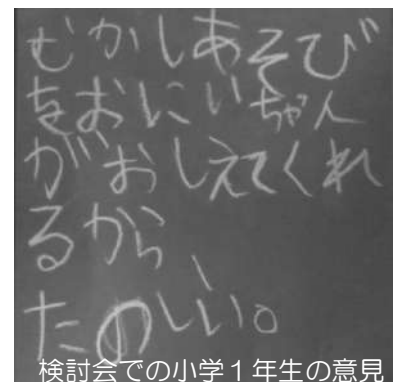 むかしあそび
をおにいちゃん
がおしえてくれ
るから、
たのしい。
検討会での小学1年生の意見